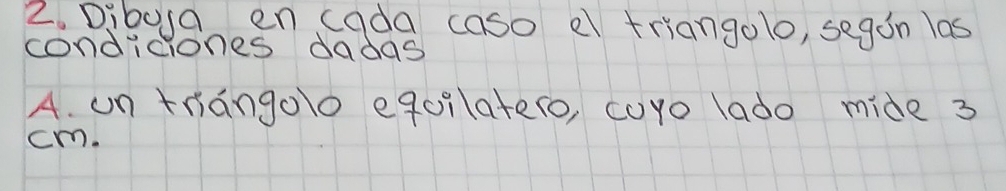 2. Dibuja en cada caso el triangulo, según las
condiciones dadas
A. un triángulo equilatero, cuyo lado mide 3
cm.